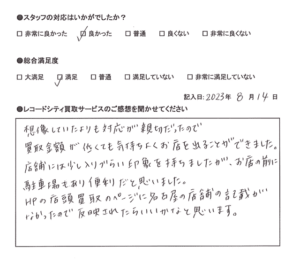 ●スタッフの対応はいかがでしたか？
□ 非常に良かった ☑ 良かった □ 普通 □ 良くない □ 非常に良くない
●総合満足度
□ 大満足 ☑ 満足 □ 普通 □ 満足していない □ 非常に満足していない
記入日: 2023年 8月 14日
●レコードシティ買取サービスのご感想を聞かせてください
想像していたよりも対応が親切だったので
買取金額が低くても気持ちよくお店を出ることができました。
店舗には少し入りづらい印象を持ちましたが、お店の前に
駐車場もあり便利だと思いました。
HPの店頭買取のページに名古屋の店舗の記載が
なかったので反映されたらいいかなと思います。